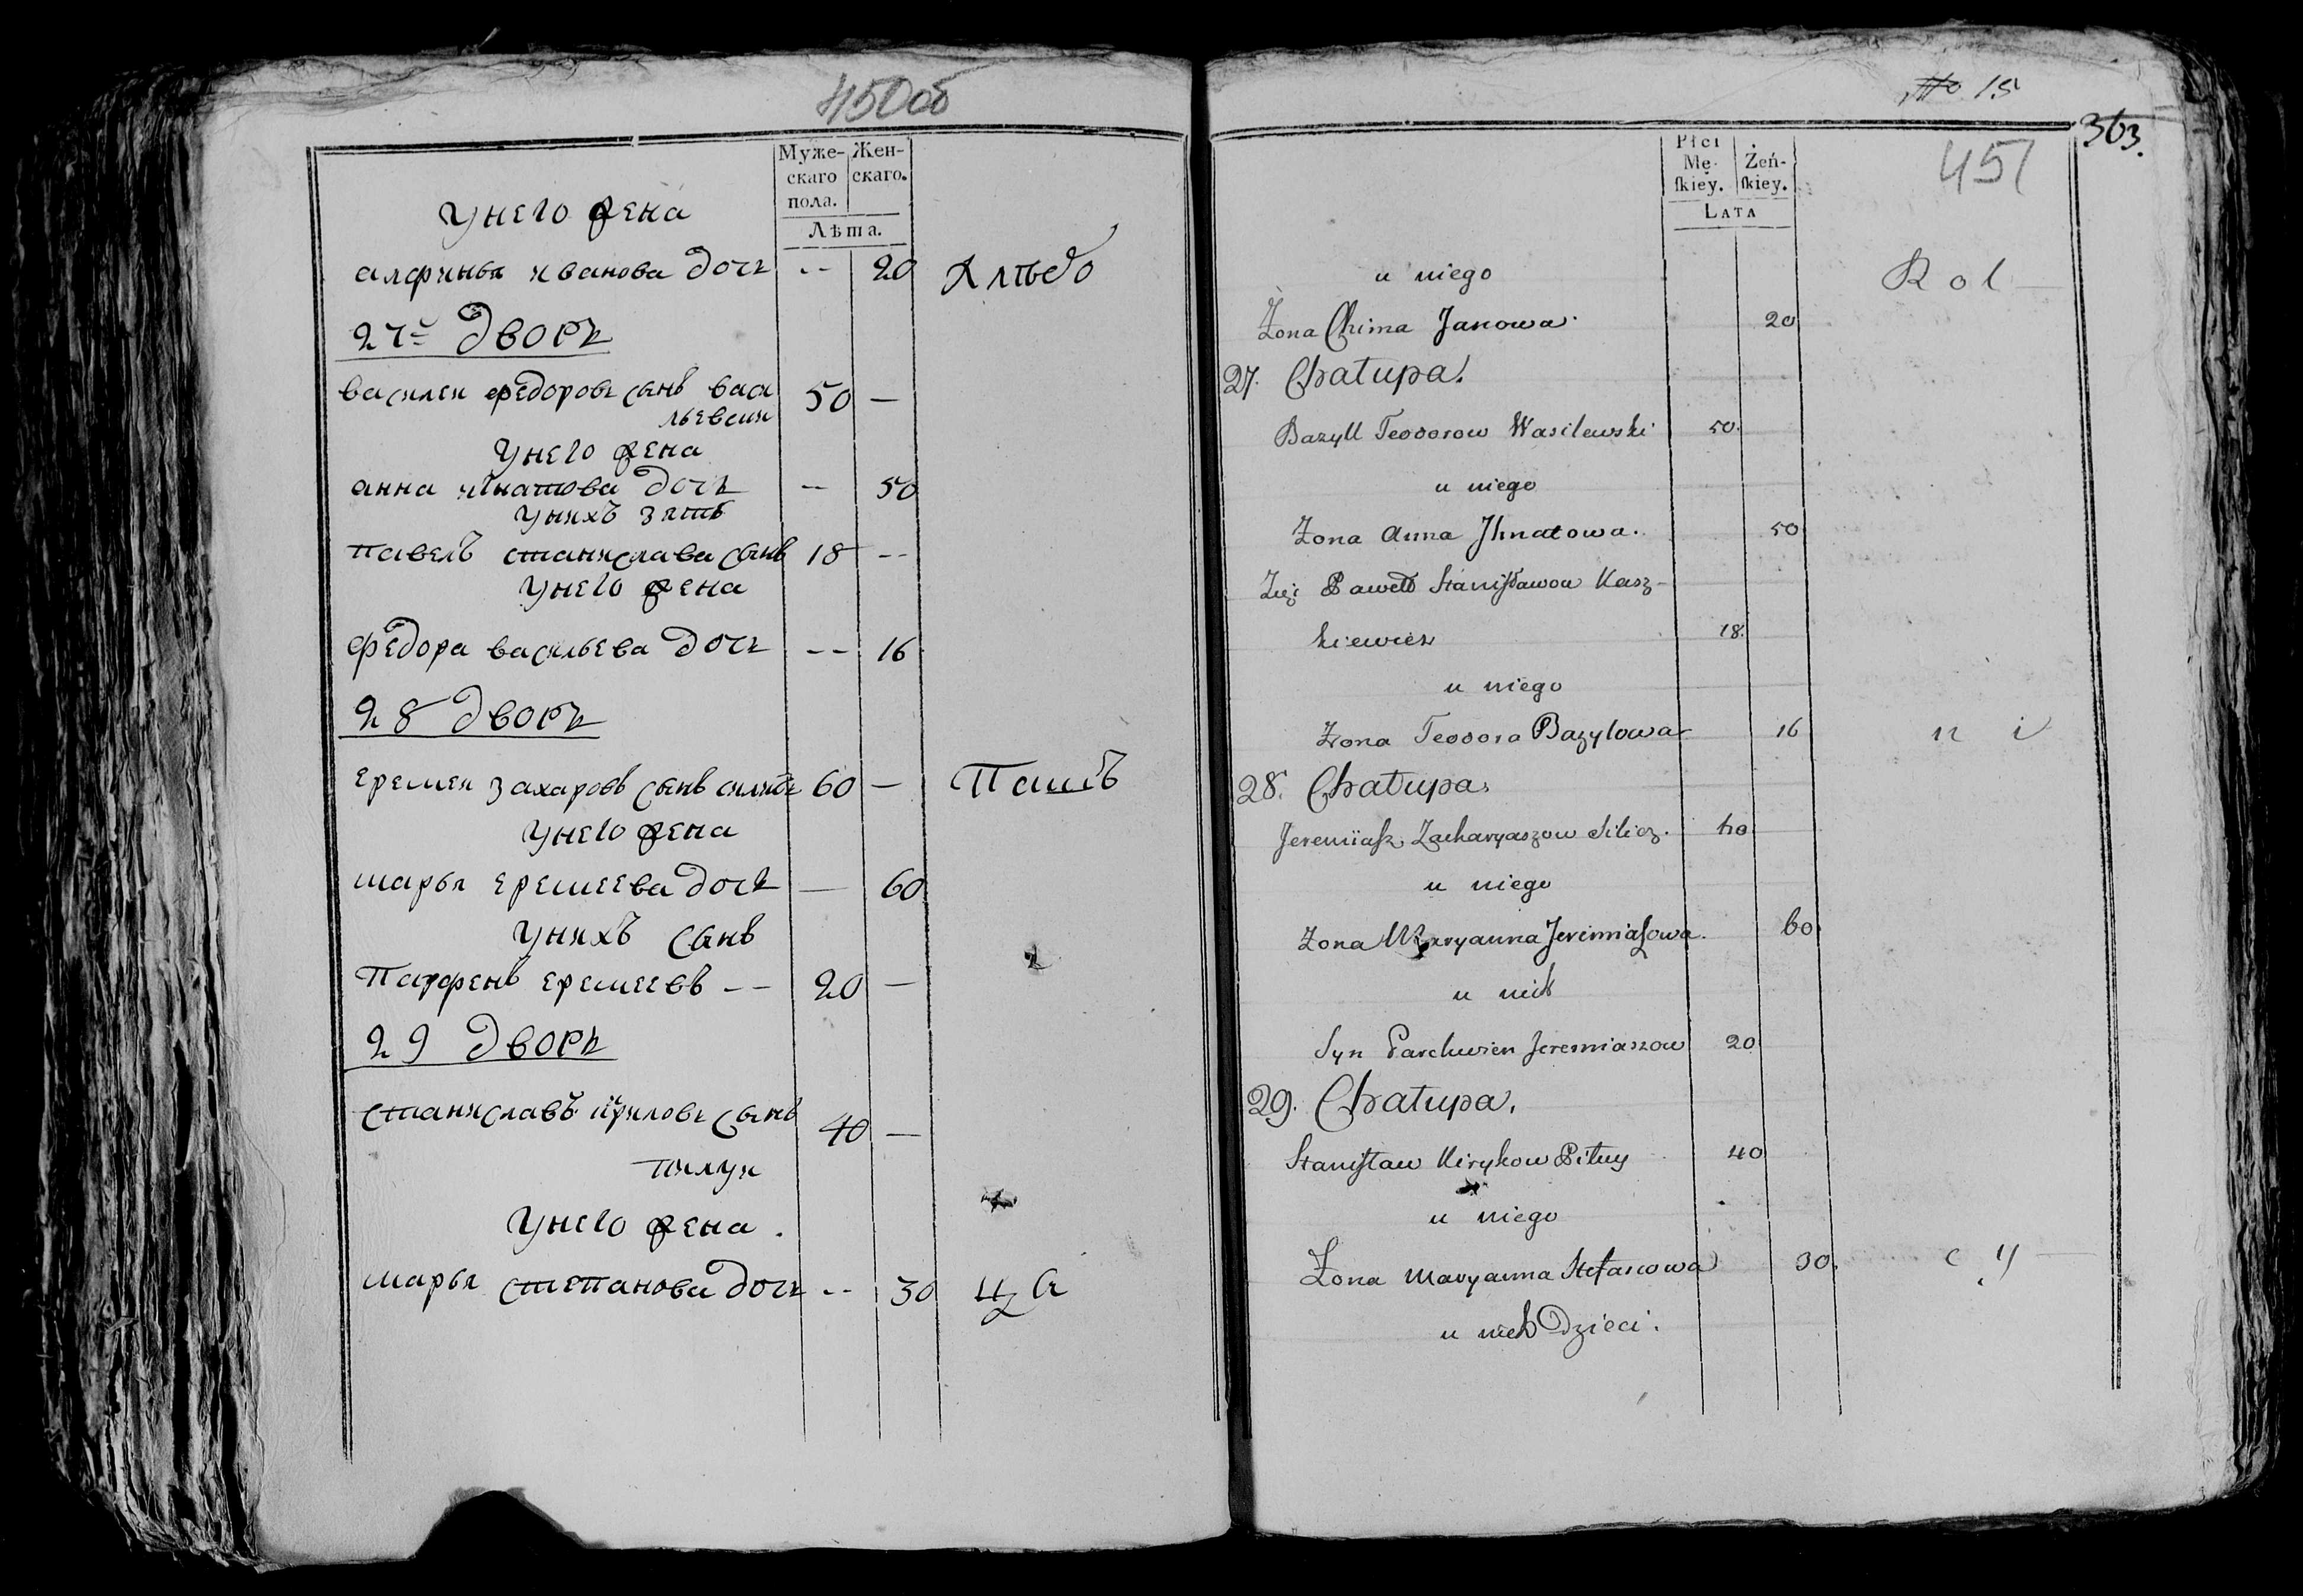 450об
Муже- Жен-
скаго скаго.
пола.
Лѣта.
У него жена
алфинья иванова дочь -- 20 Хлѣбо
27й Дворъ
василеи федоровъ сынъ васи 50 —
льевски
У него жена
анна игнатова дочь -- 50
У нихъ зять
павелъ станиславъ сынъ 18 --
У него жена
федора васильева дочь -- 16
28 Дворъ
еремеи захаровъ сынъ 60 — Пашъ
У него жена
марья еремеева дочь — 60
У нихъ сынъ
Парфенъ еремеевъ -- 20 —
29 Дворъ
станиславъ кириловъ сынъ 40 —
пилуи
У него жена.
марья степанова дочь -- 30 ца
No 15
363.
451
Płci
Mę- Żeń-
ſkiey. ſkiey.
LATA
u niego Rol—
Żona Chima Janowa. 20
27. Chałupa.
Bazyll Teodorow Wasilewski 50.
u niego
Żona Anna Ihnatowa. 50
Zięć Paweł Staniſławow Kasz-
kiewicz 18.
u niego
Żona Teodora Bazylowa 16 n i
28. Chałupa.
Jeremiaſz Zacharyaszow Silicz. 60
u niego
Żona Maryanna Jeremiaſzowa. 60.
u nich
Syn Parchwien Jeremiaszow 20
29. Chałupa.
Staniſław Kirykow Piłuy 40
u niego
Żona Maryanna Stefanowa 30. c y —
u nich Dzieci.